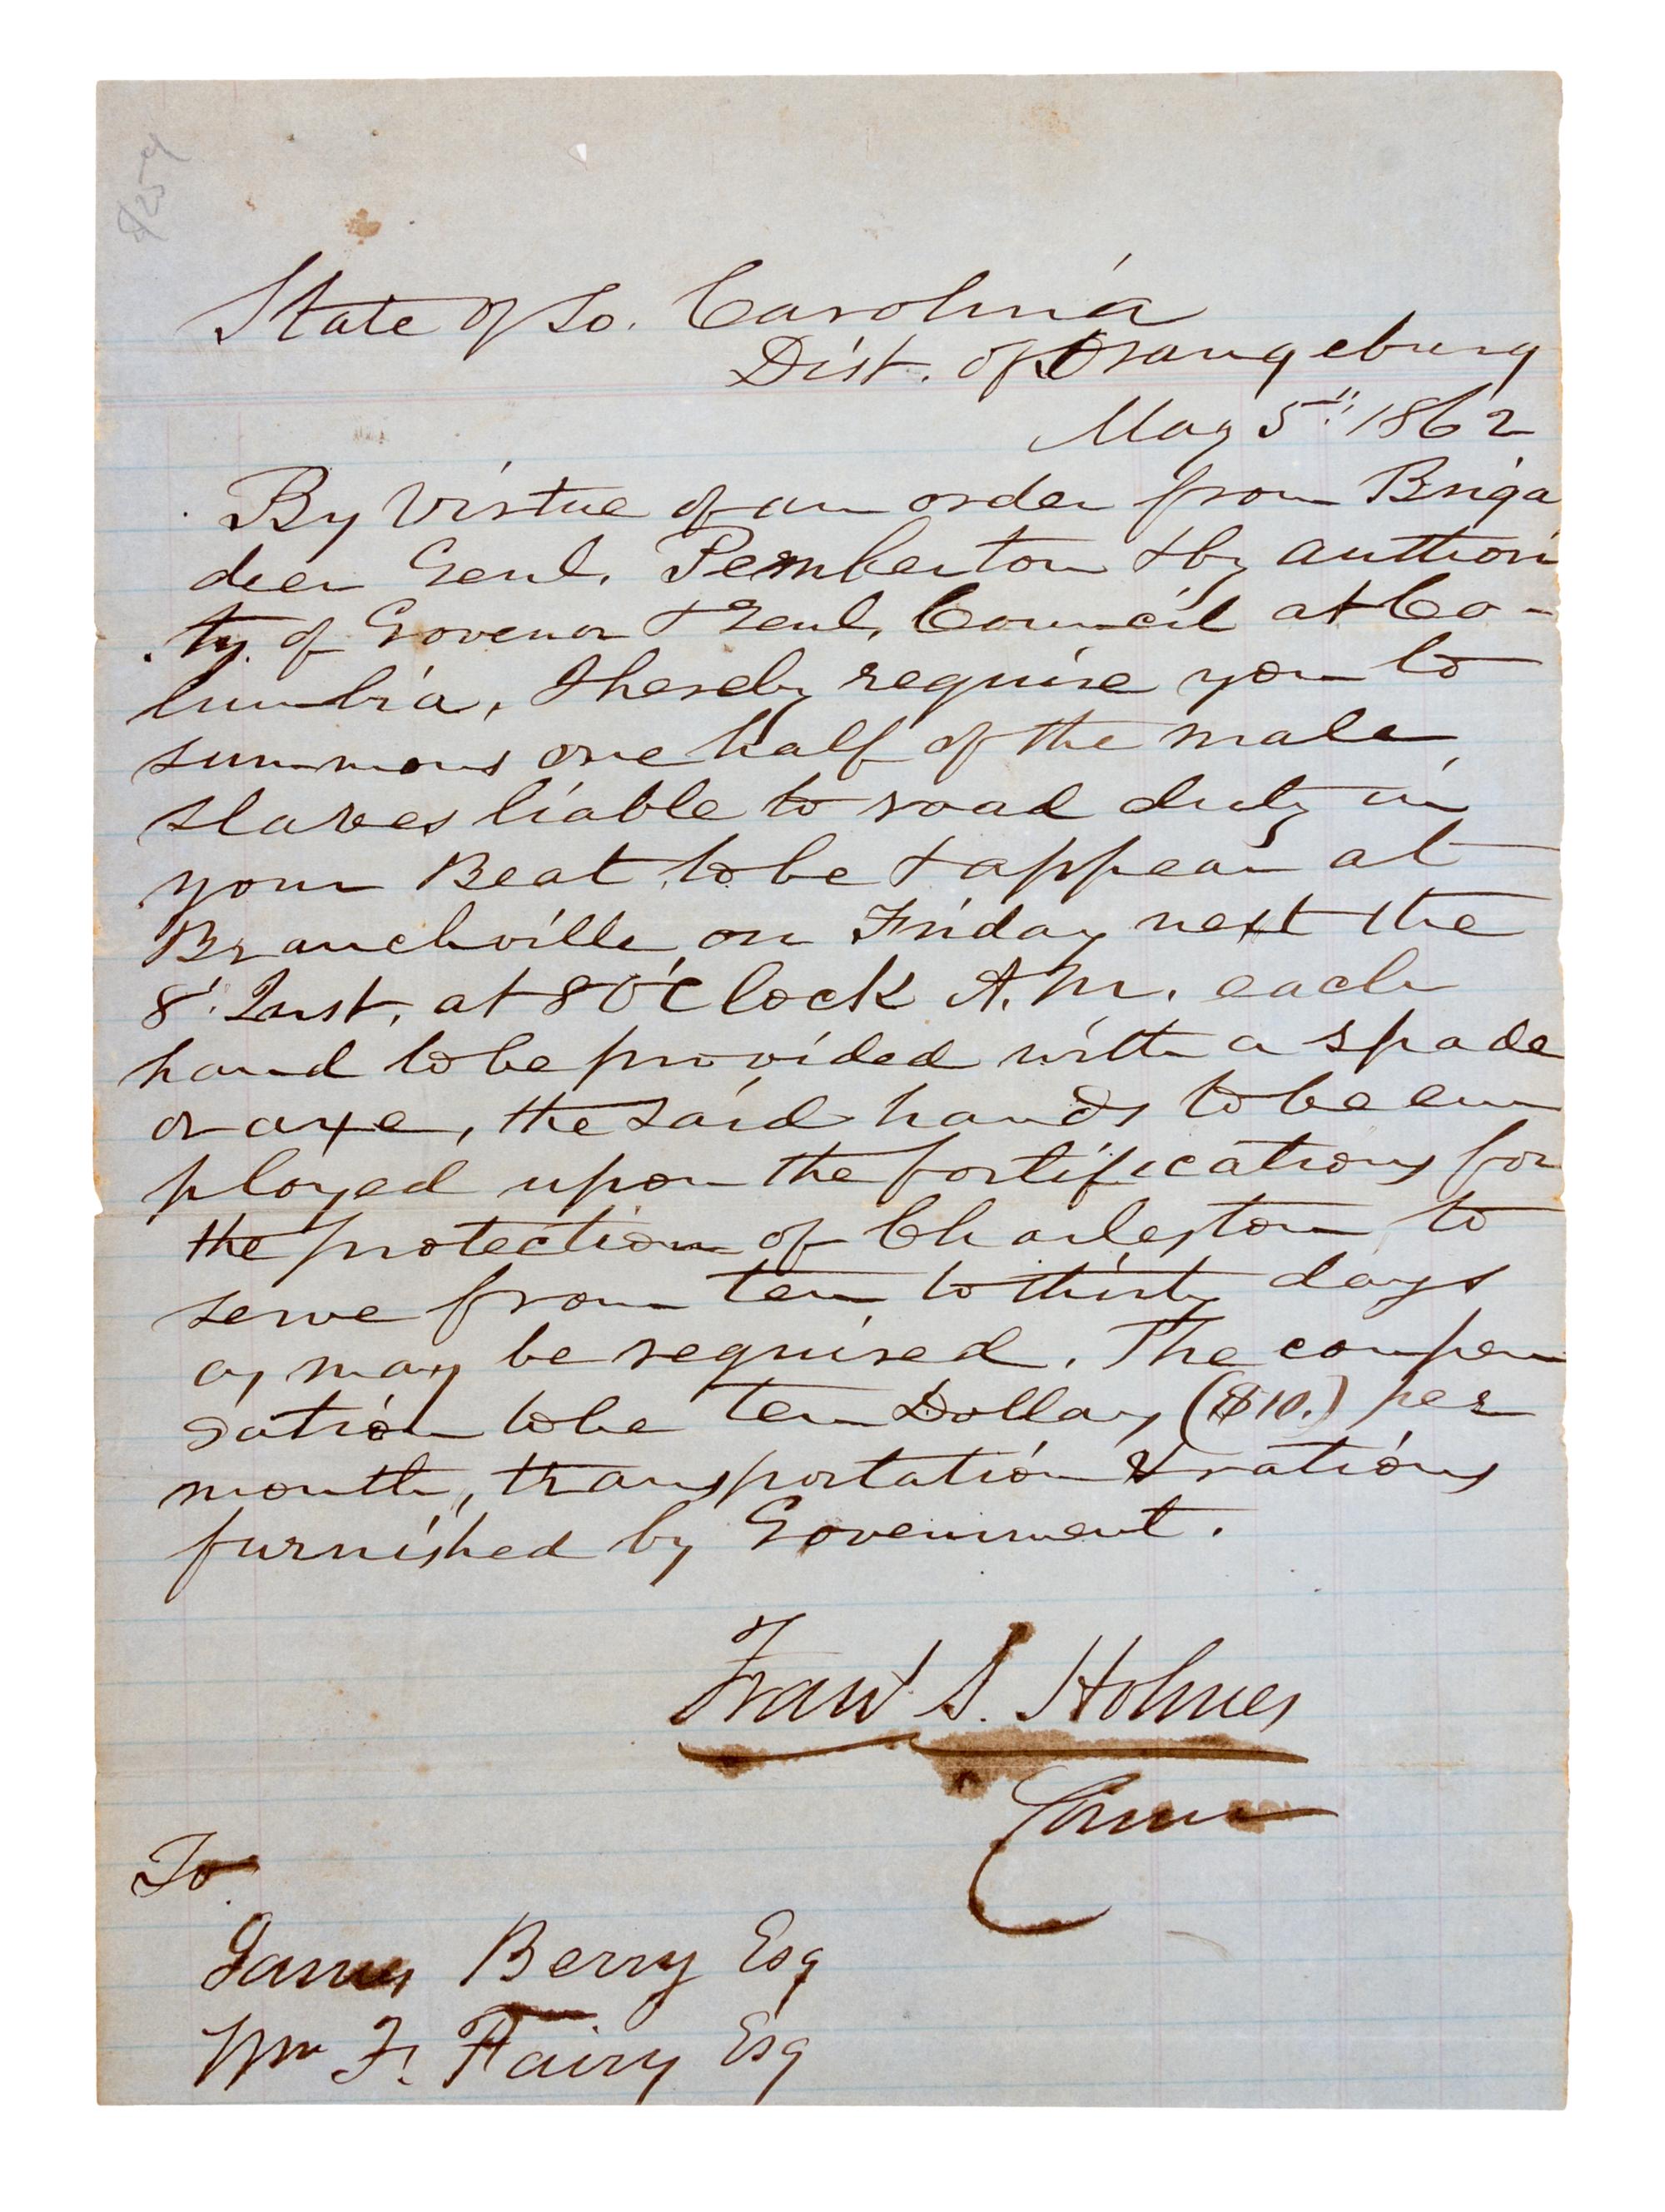 State of So. Carolina
Dist. of Orangeburg
May 5th 1862
By Virtue of an order from Briga
deer Genl. Pemberton & by authori
ty of Govenor & Genl. Council at Co-
lumbia, I hereby require you to
summons one half of the male
slaves liable to road duty in
your Beat to be & appear at
Branchville on Friday next the
8' Inst. at 8 O'Clock A.M. each
hand to be provided with a spade
or axe, the said hands to be em
ployed upon the fortifications for
the protection of Charleston to
serve from ten to thirty days
as may be required. The compen
sation to be ten Dollars ($10.) per
month, transportation & rations
furnished by Government.
S. Holmes
To
James Berry Esq
Wm F. Fairy Esq